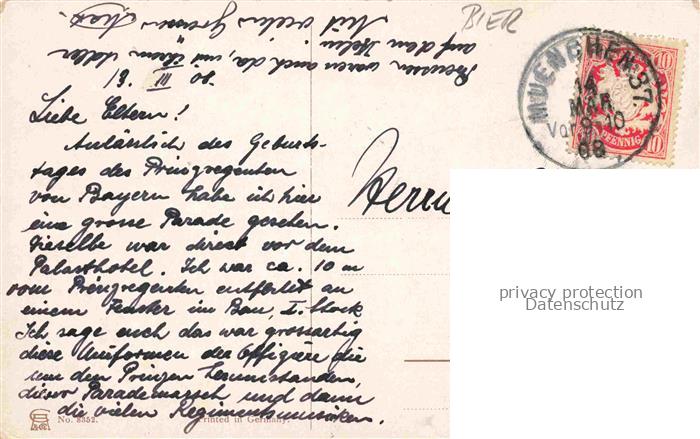 BIER
MUENCHEN.37.
14
MAR.
Vor.9-10
08
10
10
PFENNIG
13. III 08.
Liebe Eltern!
Anlässlich des Geburts-
tages des Prinzregenten
von Bayern habe ich hier
eine grosse Parade gesehen.
Dieselbe war direkt vor dem
Palasthotel. Ich war ca. 10 m
vom Prinzregenten entfernt an
einem Fenster im Bau, I. Stock
Ich sage euch das war grossartig
diese Uniformen der Offiziere die
um den Prinzen herumstanden,
dieser Parademarsch und dann
die vielen Regimentsmusiken.
Preussen waren auch da, mit ihrem Adler
auf dem Helm
Mit vielen Grüssen
Herrn
privacy protection
Datenschutz
No. 8352.
Printed in Germany.